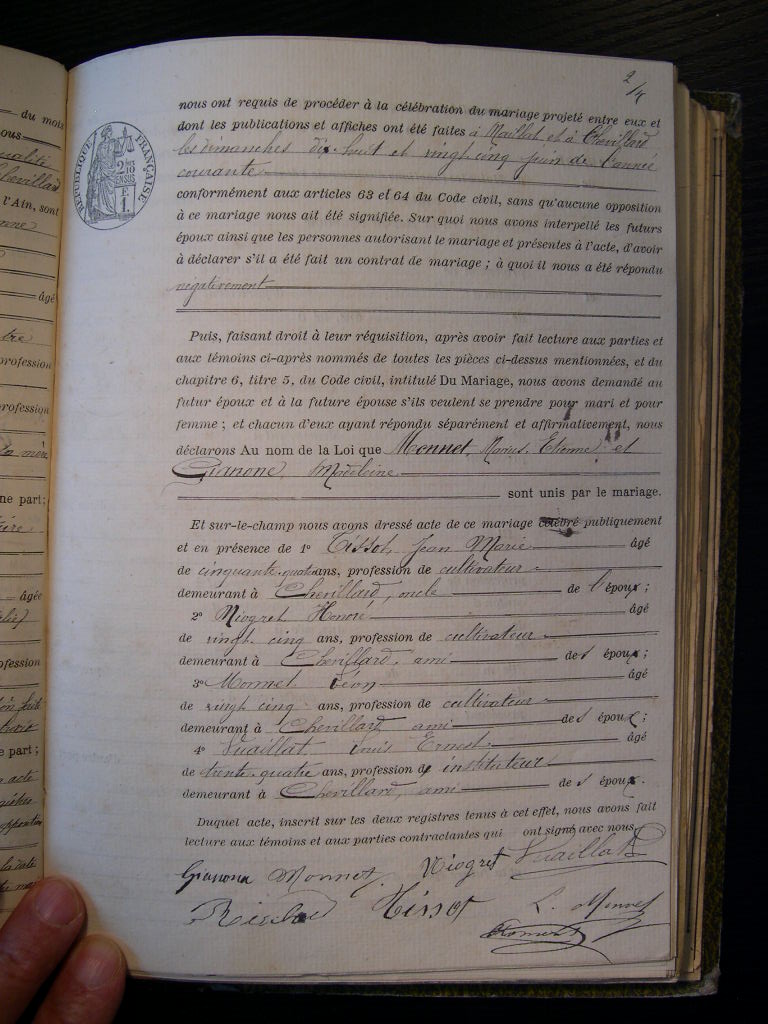 du mois
ous
Chevillard
l'Ain, sont
âgé
profession
profession
ne part;
âgée
ofession
e part;
acte
2/4
RÉPUBLIQUE FRANÇAISE
nous ont requis de procéder à la célébration du mariage projeté entre eux et
dont les publications et affiches ont été faites à Maillat et à Chevillard
les dimanches dix-huit et vingt cinq juin de l'année
courante
conformément aux articles 63 et 64 du Code civil, sans qu'aucune opposition
à ce mariage nous ait été signifiée. Sur quoi nous avons interpellé les futurs
époux ainsi que les personnes autorisant le mariage et présentes à l'acte, d'avoir
à déclarer s'il a été fait un contrat de mariage ; à quoi il nous a été répondu
négativement
Puis, faisant droit à leur réquisition, après avoir fait lecture aux parties et
aux témoins ci-après nommés de toutes les pièces ci-dessus mentionnées, et du
chapitre 6, titre 5, du Code civil, intitulé Du Mariage, nous avons demandé au
futur époux et à la future épouse s'ils veulent se prendre pour mari et pour
femme ; et chacun d'eux ayant répondu séparément et affirmativement, nous
déclarons Au nom de la Loi que Monnet, Marius, Etienne, et
Granone, Madeleine
sont unis par le mariage.
Et sur-le-champ nous avons dressé acte de ce mariage célébré publiquement
et en présence de 1° Tissot, Jean Marie âgé
de cinquante-quatre ans, profession de cultivateur
demeurant à Chevillard, oncle de l'époux ;
2° Niogret Honoré âgé
de vingt cinq ans, profession de cultivateur
demeurant à Chevillard, ami de l époux ;
3° Monnet Léon âgé
de vingt cinq ans, profession de cultivateur
demeurant à Chevillard, ami de l époux ;
4° Vuaillat Louis Ernest âgé
de trente-quatre ans, profession de instituteur
demeurant à Chevillard, ami de l époux.
Duquel acte, inscrit sur les deux registres tenus à cet effet, nous avons fait
lecture aux témoins et aux parties contractantes qui ont signé avec nous
Granona Monnet Niogret Vuaillat
Tissot L. Monnet